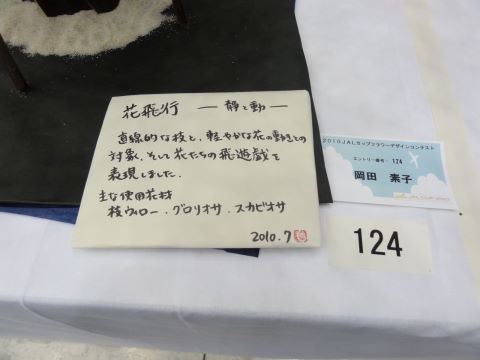 花飛行 ― 静と動 ―
直線的な枝と、軽やかな花の動きとの
対象、そして花たちの飛遊戯を
表現しました。
主な使用花材
枝ウィロー．グロリオサ．スカビオサ
2010.7
2010JALカップフラワーデザインコンテスト
エントリー番号： 124
岡田 素子
124